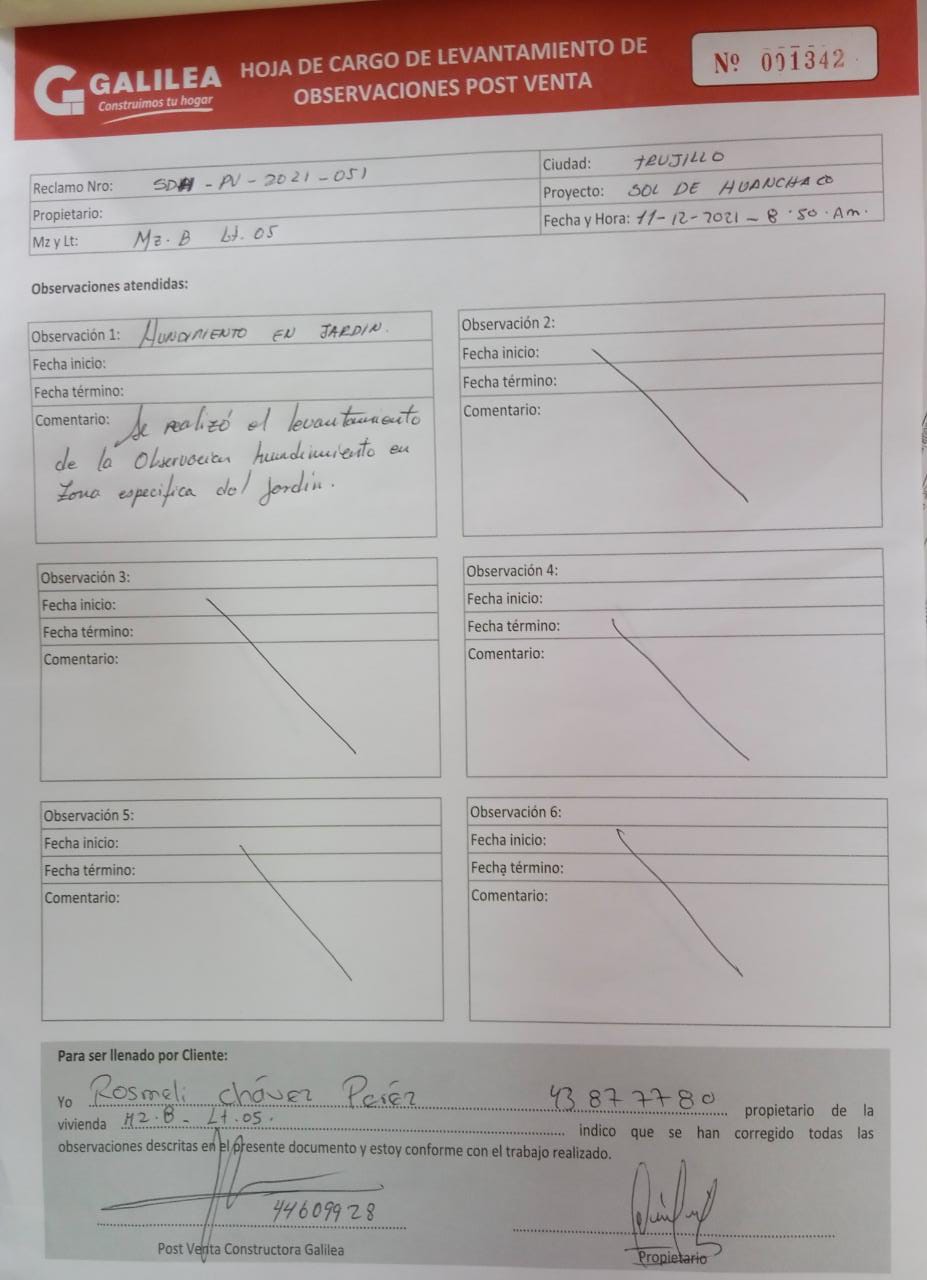 GALILEA
Construimos tu hogar
HOJA DE CARGO DE LEVANTAMIENTO DE
OBSERVACIONES POST VENTA
Nº 001342
Reclamo Nro: SDH - PV - 2021 - 051
Propietario:
Mz y Lt: Mz. B Lt. 05
Ciudad: TRUJILLO
Proyecto: SOL DE HUANCHACO
Fecha y Hora: 11-12-2021 - 8:50 Am.
Observaciones atendidas:
Observación 1: HUNDIMIENTO EN JARDIN.
Fecha inicio:
Fecha término:
Comentario: Se realizó el levantamiento
de la Observacion hundimiento en
Zona especifica del Jardin.
Observación 2:
Fecha inicio:
Fecha término:
Comentario:
Observación 3:
Fecha inicio:
Fecha término:
Comentario:
Observación 4:
Fecha inicio:
Fecha término:
Comentario:
Observación 5:
Fecha inicio:
Fecha término:
Comentario:
Observación 6:
Fecha inicio:
Fecha término:
Comentario:
Para ser llenado por Cliente:
Yo Rosmeli Chávez Peréz 43877780 propietario de la
vivienda Mz. B - Lt. 05. indico que se han corregido todas las
observaciones descritas en el presente documento y estoy conforme con el trabajo realizado.
44609928
Post Venta Constructora Galilea
Propietario